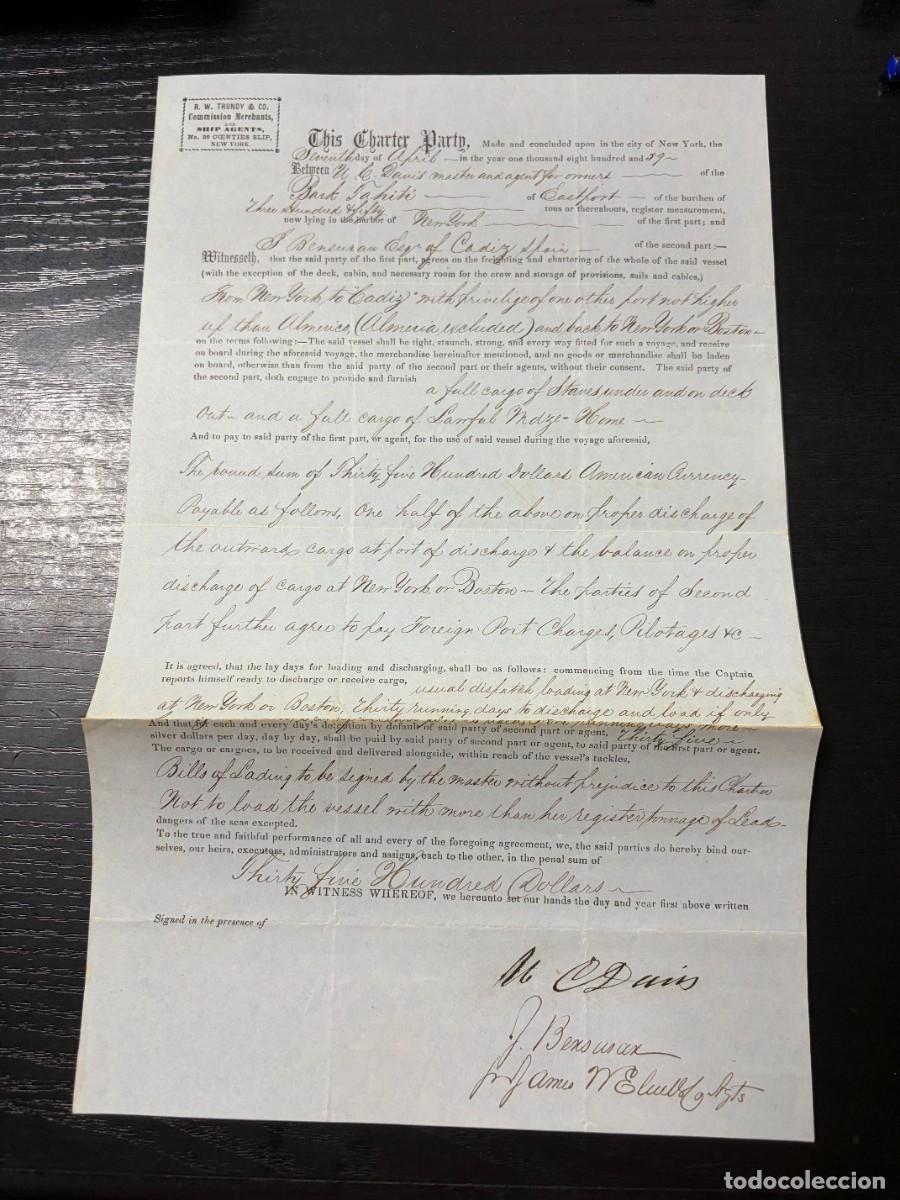 R. W. TRUNDY & CO.
Commission Merchants,
AND
SHIP AGENTS,
No. 28 COENTIES SLIP,
NEW YORK.
This Charter Party, Made and concluded upon in the city of New York, the
Seventh day of April in the year one thousand eight hundred and 59
Between C. Davis master and agent for owners of the
Bark Tahiti of Eastport of the burthen of
Three Hundred & fifty tons or thereabouts, register measurement,
now lying in the harbor of New York of the first part; and
J Bensusan Esqr of Cadiz Spain of the second part:—
Witnesseth, that the said party of the first part, agrees on the freighting and chartering of the whole of the said vessel
(with the exception of the deck, cabin, and necessary room for the crew and storage of provisions, sails and cables,)
From New York to Cadiz with privilige of one other port not higher
up than Almerica, (Almeria excluded) and back to New York or Boston
on the terms following:—The said vessel shall be tight, staunch, strong, and every way fitted for such a voyage, and receive
on board during the aforesaid voyage, the merchandise hereinafter mentioned, and no goods or merchandise shall be laden
on board, otherwise than from the said party of the second part or their agents, without their consent. The said party of
the second part, doth engage to provide and furnish
a full cargo of Staves under and on deck
Out - and a full cargo of Lawful Mdze - Home
And to pay to said party of the first part, or agent, for the use of said vessel during the voyage aforesaid,
The round sum of Thirty five Hundred Dollars American Currency
Payable as follows, One half of the above on proper discharge of
the outward cargo at port of discharge & the balance on proper
discharge of cargo at New York or Boston - The parties of Second
part further agree to pay Foreign Port Charges, Pilotages &c -
It is agreed, that the lay days for loading and discharging, shall be as follows: commencing from the time the Captain
reports himself ready to discharge or receive cargo,
usual dispatch loading at New York & discharging
at New York or Boston, thirty running days to discharge and load if only
running days more
And that for each and every day's detention by default of said party of second part or agent, Thirty five
silver dollars per day, day by day, shall be paid by said party of second part or agent, to said party of the first part or agent.
The cargo or cargoes, to be received and delivered alongside, within reach of the vessel's tackles,
Bills of Lading to be signed by the master without prejudice to this Charter
Not to load the vessel with more than her register tonnage of Lead
dangers of the seas excepted.
To the true and faithful performance of all and every of the foregoing agreement, we, the said parties do hereby bind our-
selves, our heirs, executors, administrators and assigns, each to the other, in the penal sum of
Thirty five Hundred Dollars
IN WITNESS WHEREOF, we hereunto set our hands the day and year first above written
Signed in the presence of
C Davis
J. Bensusan
James W Elwell Agts
todocoleccion